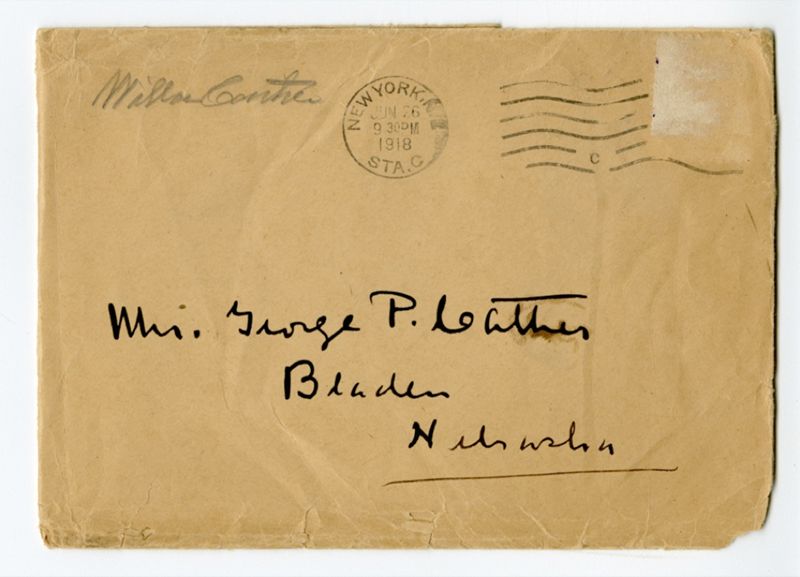 Willa Cather
NEW YORK, N.Y.
JUN 26
9 30PM
1918
STA. C
C
Mrs. George P. Cather
Bladen
Nebraska